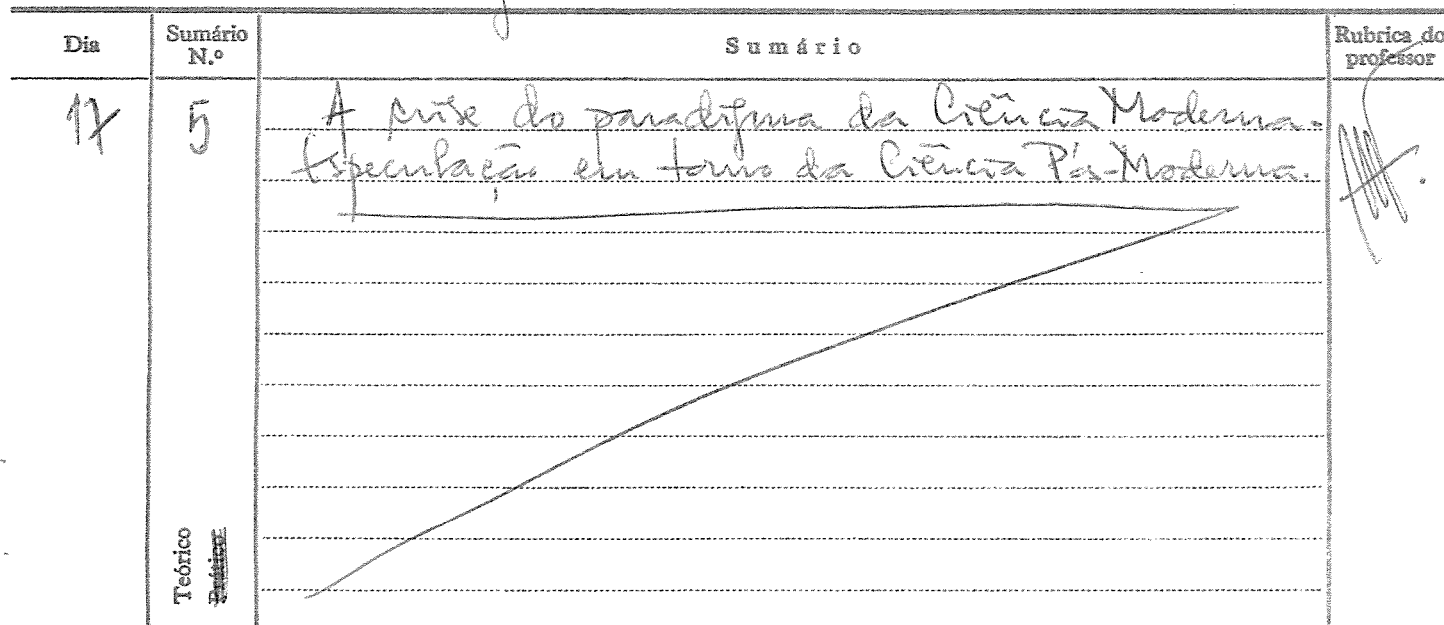 Dia
Sumário N.º
Sumário
Rubrica do professor
17
5
A crise do paradigma da Ciência Moderna.
Especulação em torno da Ciência Pós-Moderna.
Teórico
Prático